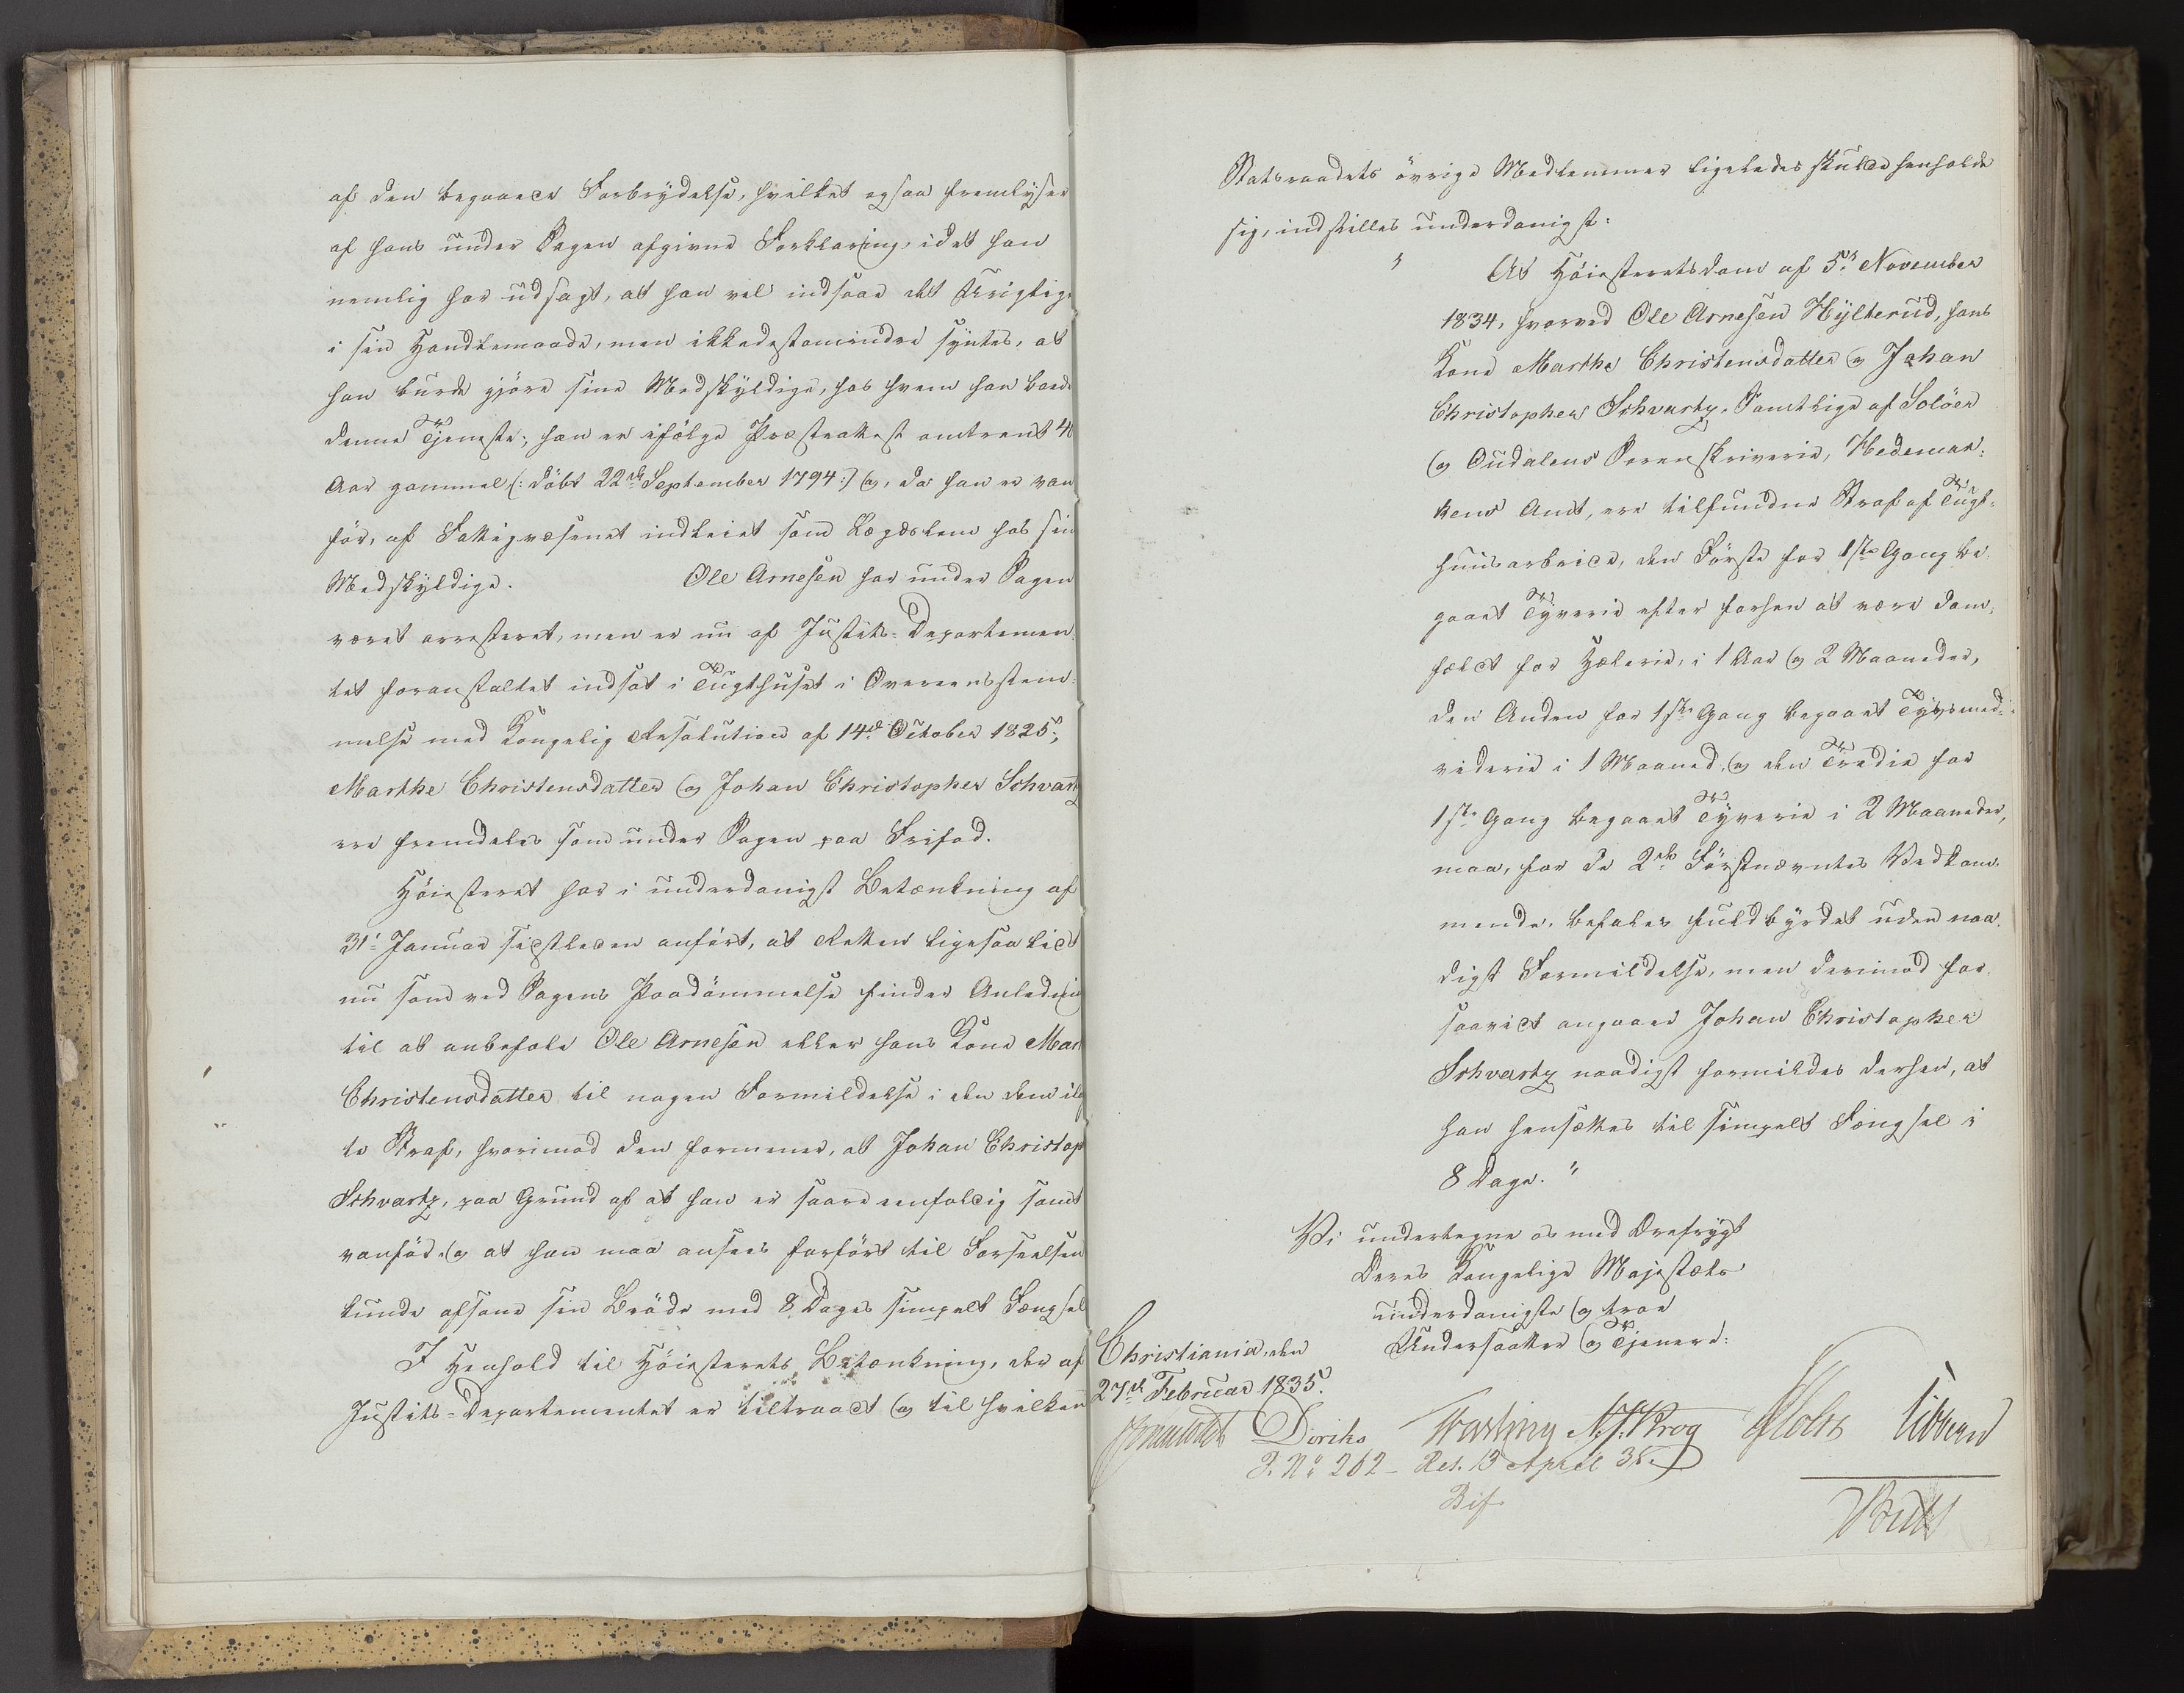 af den begaaede Forbrydelse, hvilket ogsaa fremlyser
af hans under Sagen afgivne Forklaring, idet han
nemlig har udsagt, at han vel indsaae det Urigtige
i sin Handlemaade, men ikkedestomindre syntes, at
han burde gjöre sine Medskyldige, hos hvem han boede
denne Tjeneste; han er ifölge Præsteattest omtrent 40
Aar gammel (: döbt 22de September 1794 :) og, da han er van
för, af Fattigvæsenet indleiet som Lægdslem hos sin
Medskyldige. Ole Arnesen har under Sagen
været arresteret, men er nu af Justits-Departemen
tet foranstaltet indsat i Tugthuset i Overeensstem
melse med Kongelig Resolution af 14de October 1825;
Marthe Christensdatter og Johan Christopher Schvartz
ere fremdeles som under Sagen paa Frifod.
Höiesteret har i underdanigst Betænkning af
31te Januar sidstleden anfört, at Retten ligesaa lidt
nu som ved Sagens Paadömmelse finder Anledning
til at anbefale Ole Arnesen eller hans Kone Mar
Christensdatter til nogen Formildelse i den dem ilag
te Straf, hvorimod den formener, at Johan Christop
Schvartz, paa Grund af at han er saare eenfoldig samt
vanför, og at han maa ansees forfört til Forseelsen
kunde afsone sin Bröde med 8 Dages simpelt Fængsel
I Henhold til Höiesterets Betænkning, der af
Justits-Departementet er tiltraadt og til hvilken
Statsraadets övrige Medlemmer ligeledes skulde henholde
sig, indstilles underdanigst:
" At Höiesteretsdom af 5te November
1834, hvorved Ole Arnesen Hylterud, hans
Kone Marthe Christensdatter og Johan
Christopher Schvartz, Samtlige af Solöer
og Oudalens Sorenskriverie, Hedemar-
kens Amt, ere tilfundne Straf af Tugt-
huusarbeide, den Förste for 1ste Gang be-
gaaet Tyverie efter forhen at være dom-
fældt for Hælerie, i 1 Aar og 2 Maaneder,
den Anden for 1ste Gang begaaet Tyvsmed-
viderie i 1 Maaned, og den Tredie for
1ste Gang begaaet Tyverie i 2 Maaneder,
maa, for de 2de Förstnævntes Vedkom-
mende, befales fuldbyrdet uden naa-
digst Formildelse, men derimod for-
saavidt angaaer Johan Christopher
Schvartz naadigst formildes derhen, at
han hensættes til simpelt Fængsel i
8 Dage."
Vi undertegne os med Ærefrygt
Deres Kongelige Majestæts
underdanigste og troe
Undersaatter og Tjenere:
Christiania, den
27de Februar 1835.
Diriks N. J. Krog Holst Vibe
P. No 262 - Res. 13 April 35.